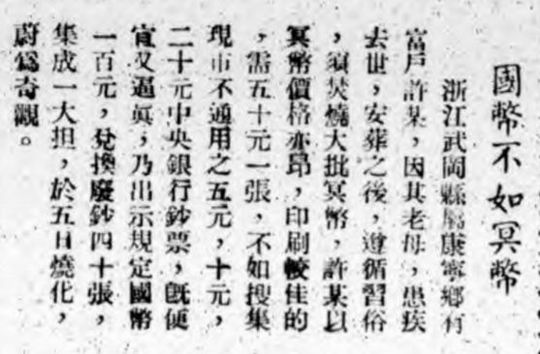 國幣不如冥幣
浙江武岡縣屬康寧鄉有
富戶許某，因其老母，患疾
去世，安葬之後，遵循習俗
，須焚燒大批冥幣，許某以
冥幣價格亦昂，印刷較佳的
，需五十元一張，不如搜集
現市不通用之五元，十元，
二十元中央銀行鈔票，既便
宜又逼眞，乃出示規定國幣
一百元，兌換廢鈔四十張，
集成一大担，於五日燒化，
蔚爲奇觀。